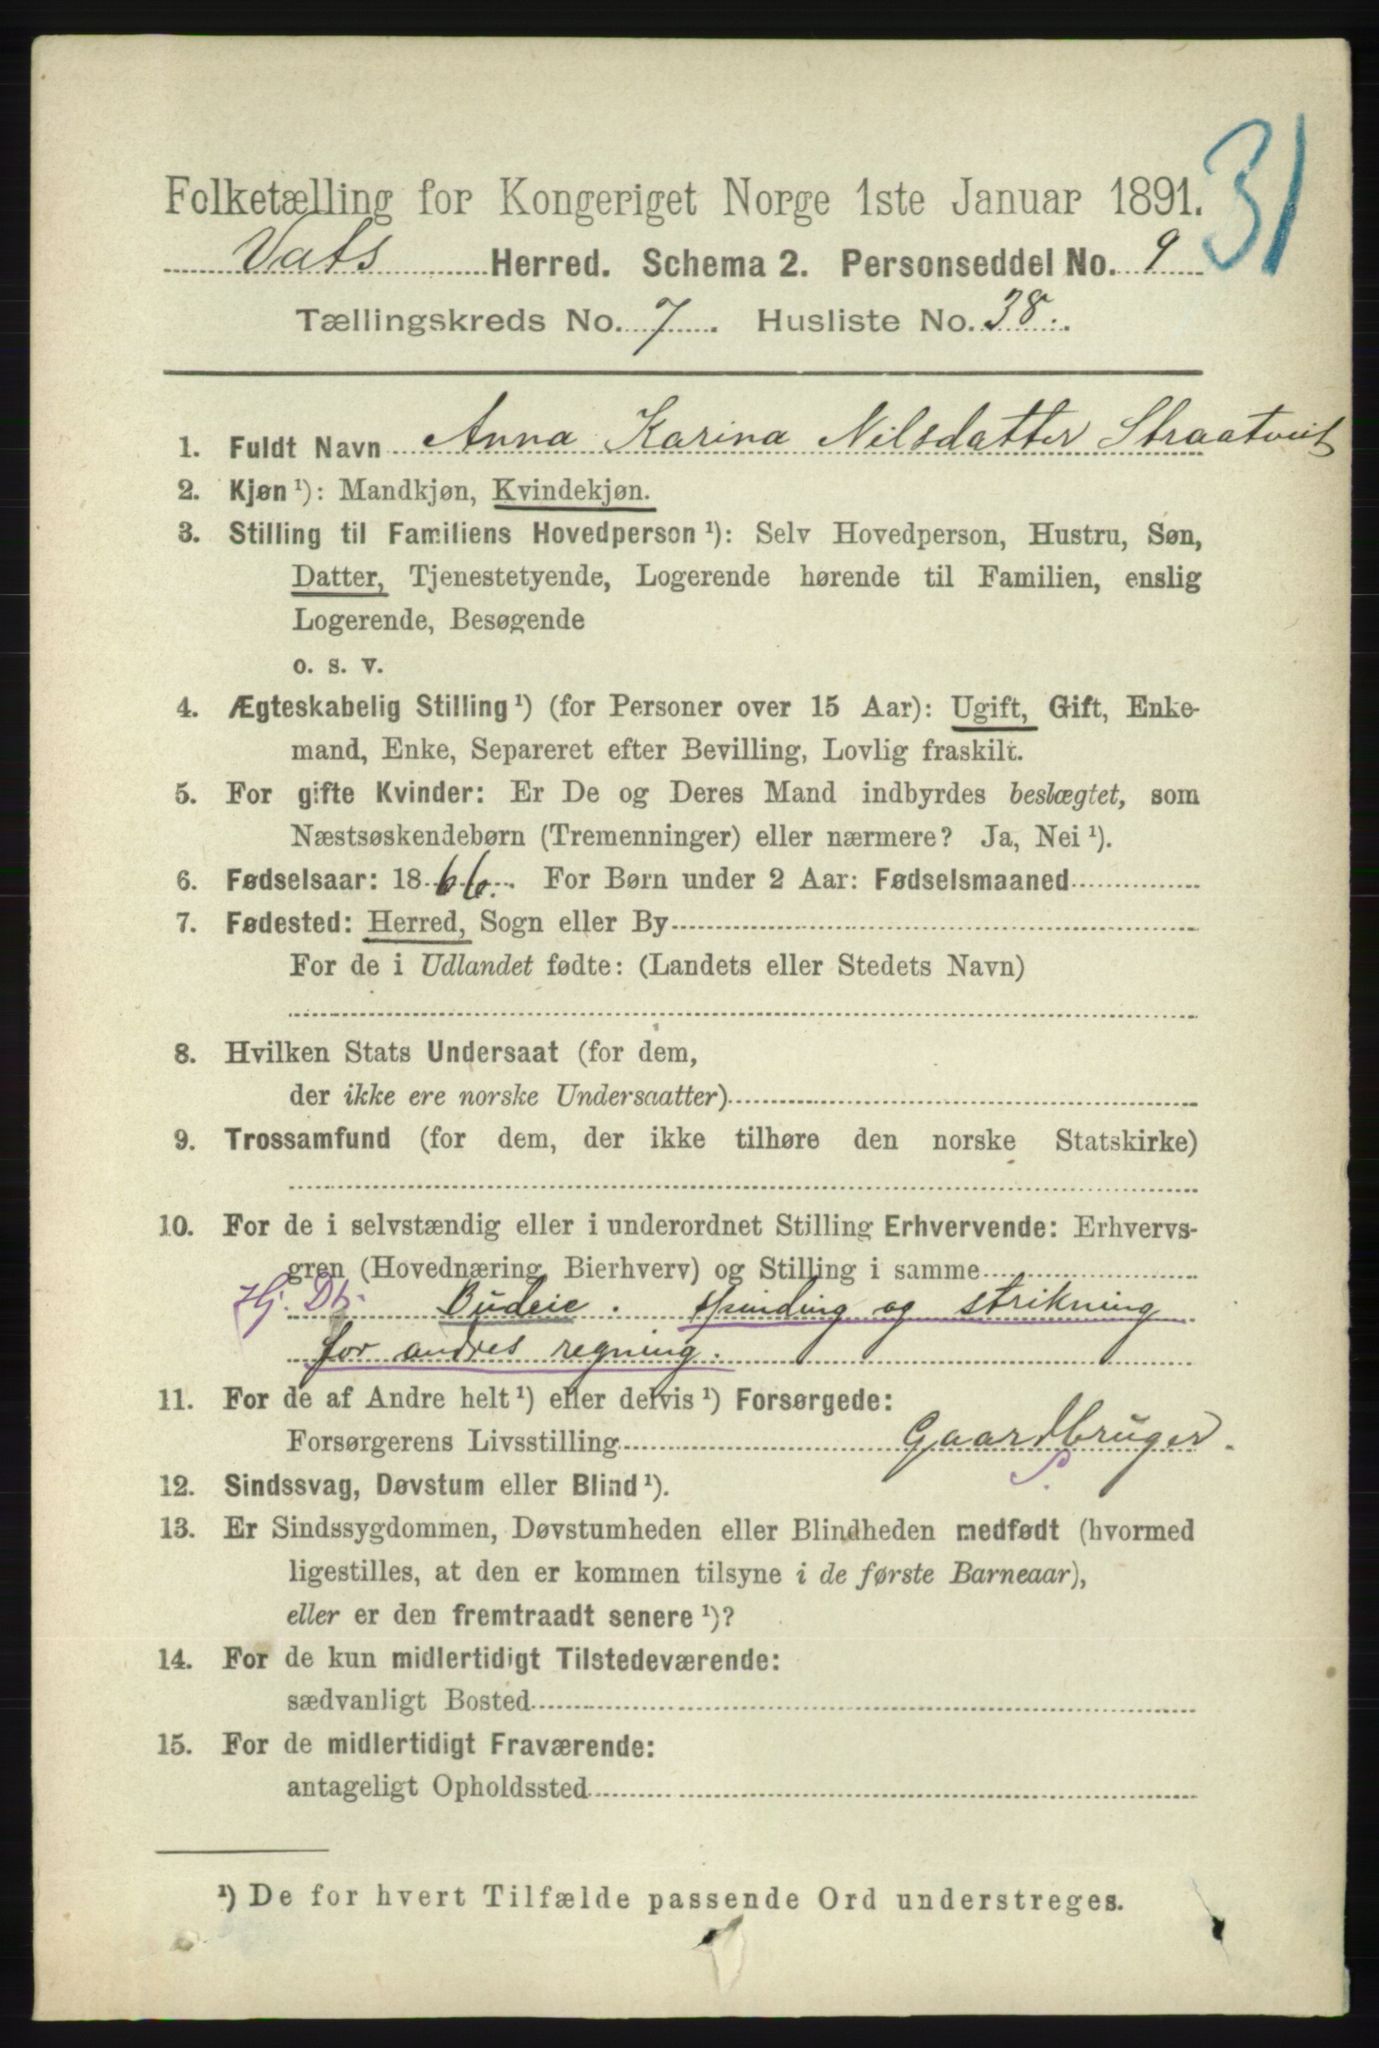 31
Folketælling for Kongeriget Norge 1ste Januar 1891.
Vats Herred. Schema 2. Personseddel No. 9
Tællingskreds No. 7. Husliste No. 38.
1. Fuldt Navn Anna Karina Nilsdatter Straatveit
2. Kjøn ¹): Mandkjøn, Kvindekjøn.
3. Stilling til Familiens Hovedperson ¹): Selv Hovedperson, Hustru, Søn,
Datter, Tjenestetyende, Logerende hørende til Familien, enslig
Logerende, Besøgende
o. s. v.
4. Ægteskabelig Stilling ¹) (for Personer over 15 Aar): Ugift, Gift, Enke-
mand, Enke, Separeret efter Bevilling, Lovlig fraskilt.
5. For gifte Kvinder: Er De og Deres Mand indbyrdes beslægtet, som
Næstsøskendebørn (Tremenninger) eller nærmere? Ja, Nei ¹).
6. Fødselsaar: 1866. For Børn under 2 Aar: Fødselsmaaned
7. Fødested: Herred, Sogn eller By
For de i Udlandet fødte: (Landets eller Stedets Navn)
8. Hvilken Stats Undersaat (for dem,
der ikke ere norske Undersaatter)
9. Trossamfund (for dem, der ikke tilhøre den norske Statskirke)
10. For de i selvstændig eller i underordnet Stilling Erhvervende: Erhvervs-
gren (Hovednæring, Bierhverv) og Stilling i samme
Hj. Dtr. Budeie. Spinding og strikning
for andres regning.
11. For de af Andre helt ¹) eller delvis ¹) Forsørgede:
Forsørgerens Livsstilling Gaardbruger.
S.
12. Sindssvag, Døvstum eller Blind ¹).
13. Er Sindssygdommen, Døvstumheden eller Blindheden medfødt (hvormed
ligestilles, at den er kommen tilsyne i de første Barneaar),
eller er den fremtraadt senere ¹)?
14. For de kun midlertidigt Tilstedeværende:
sædvanligt Bosted
15. For de midlertidigt Fraværende:
antageligt Opholdssted
¹) De for hvert Tilfælde passende Ord understreges.